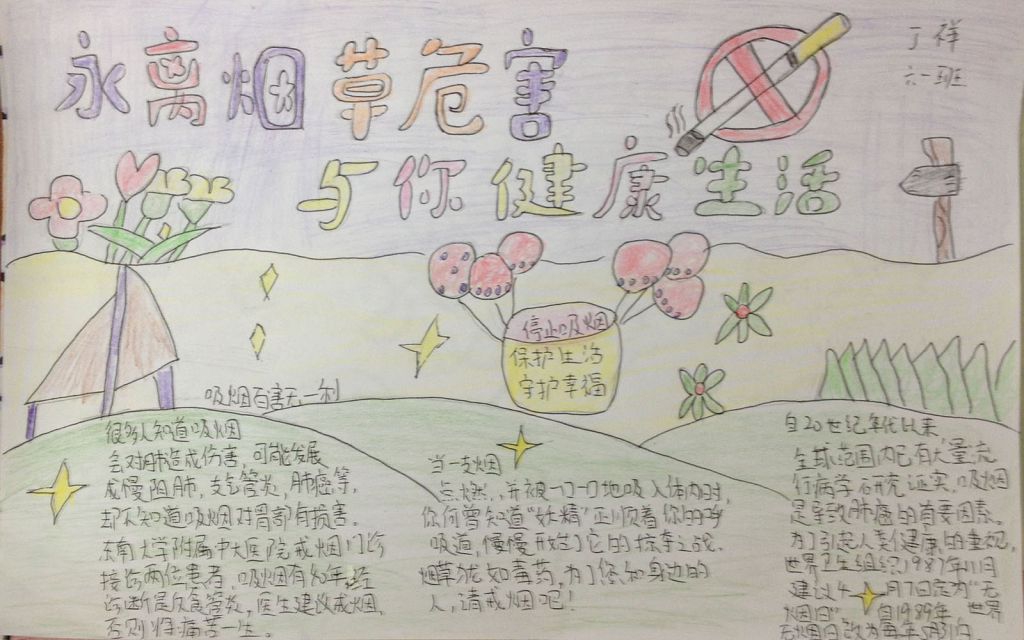 永离烟草危害
与你健康生活
丁祥
六一班
停止吸烟
保护生活
守护幸福
吸烟百害无一利
很多人知道吸烟
会对肺造成伤害,可能发展
成慢阻肺,支气管炎,肺癌等,
却不知道吸烟对胃部有损害。
东南大学附属中大医院戒烟门诊
接诊两位患者,吸烟有
诊断是反食管炎,医生建议戒烟,
否则将痛苦一生。
当一支烟
点燃,,并被一口一口地吸入体内时,
你何曾知道“妖精”正顺着你的呼
吸道,慢慢开始了它的掠夺之战.
烟草犹如毒药,为了您和身边的
人,请戒烟吧!
自20世纪年代以来,
全球范围内已有大量流
行病学研究证实,吸烟
是导致肺癌的首要因素。
为了引起人类健康的重视,
世界卫生组织1987年11月
建议 月7日定为“无
烟日” 自1989年 世界
无烟日改为每年